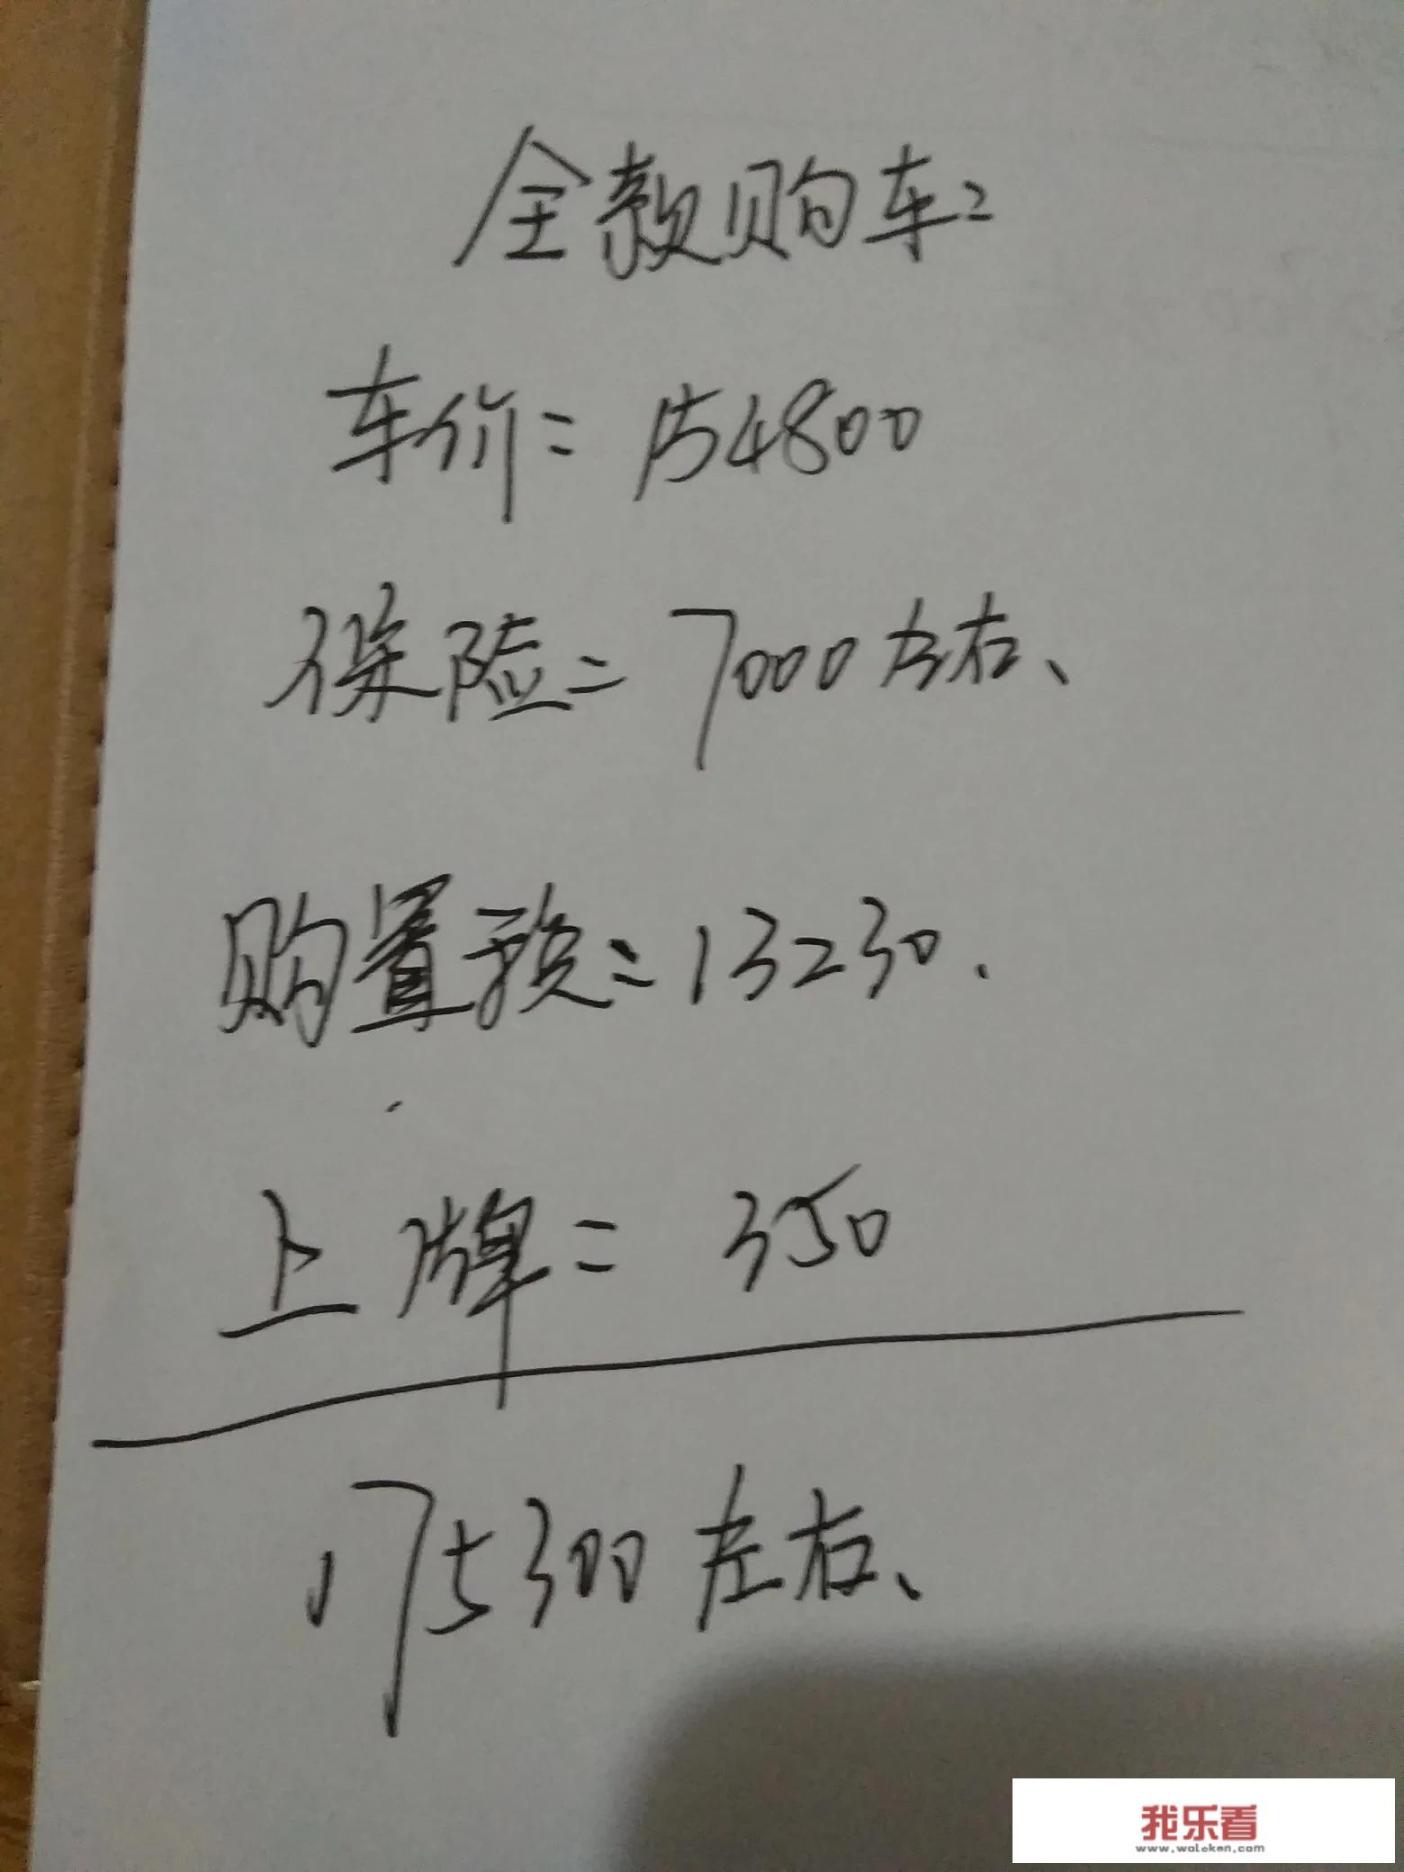 全款购车:
车价= 154800
保险= 7000左右、
购置税= 13230.
上牌= 350
175300左右、
我乐看
www.woleken.com